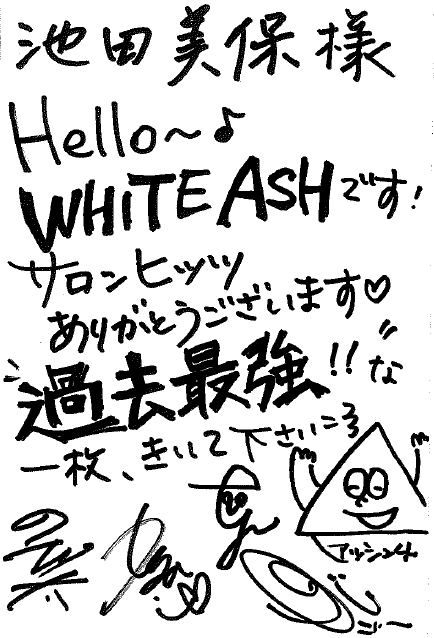 池田美保様
Hello〜♪
WHiTE ASHです!
サロンヒッツ
ありがとうございます♡
過去最強!!な
一枚、きいて下さい=3
アッシュ4